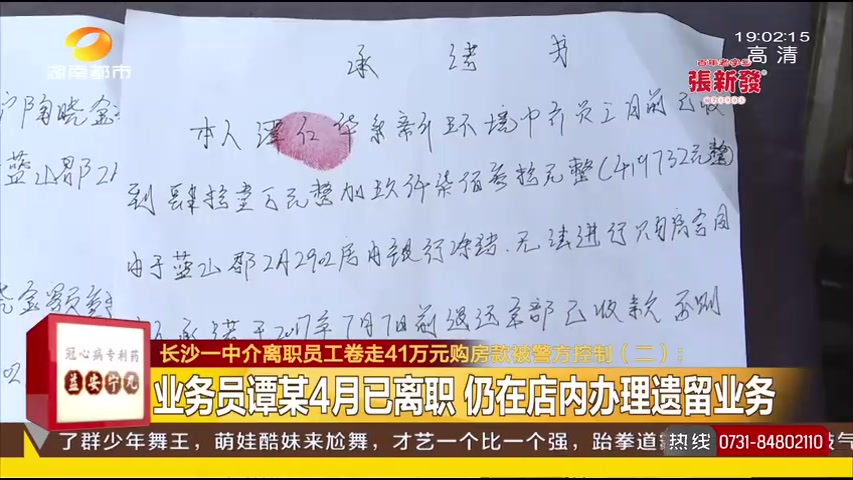 湖南都市
19:02:15
高清
百年老字号
張新發
承诺书
本人谭仁华系新环境中介员工月前已收
到肆拾壹万元整加玖仟柒佰叁拾元整(419732元整)
由于蓝山郡2A2902居由银行冻结.无法进行购房合同
承诺于2017年7月7日前退还全部已收款 否则
陶晓金
蓝山郡2A
冠心病专利药
益安宁丸
长沙一中介离职员工卷走41万元购房款被警方控制（二）：
业务员谭某4月已离职 仍在店内办理遗留业务
了群少年舞王，萌娃酷妹来尬舞，才艺一个比一个强，跆拳道
热线
0731-84802110
气